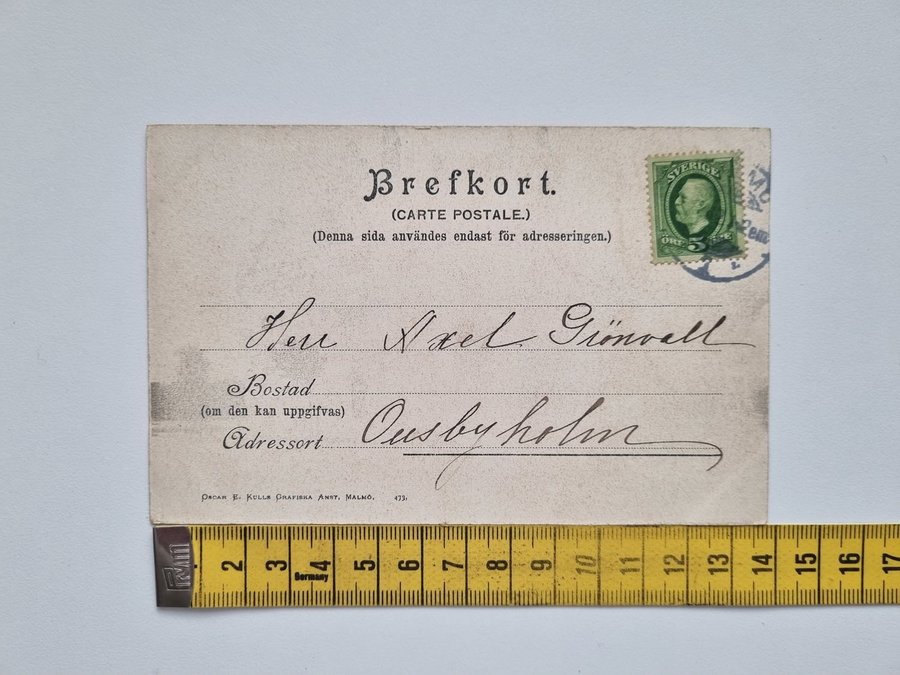 Brefkort.
(CARTE POSTALE.)
(Denna sida användes endast för adresseringen.)
SVERIGE
ÖRE 5 ÖRE
Herr Axel Grönvall
Bostad
(om den kan uppgifvas)
Adressort Ousbyholm
OSCAR E. KULLS GRAFISKA ANST, MALMÖ. 473.
2 3 4 5 6 7 8 9 10 11 12 13 14 15 16 17
Germany